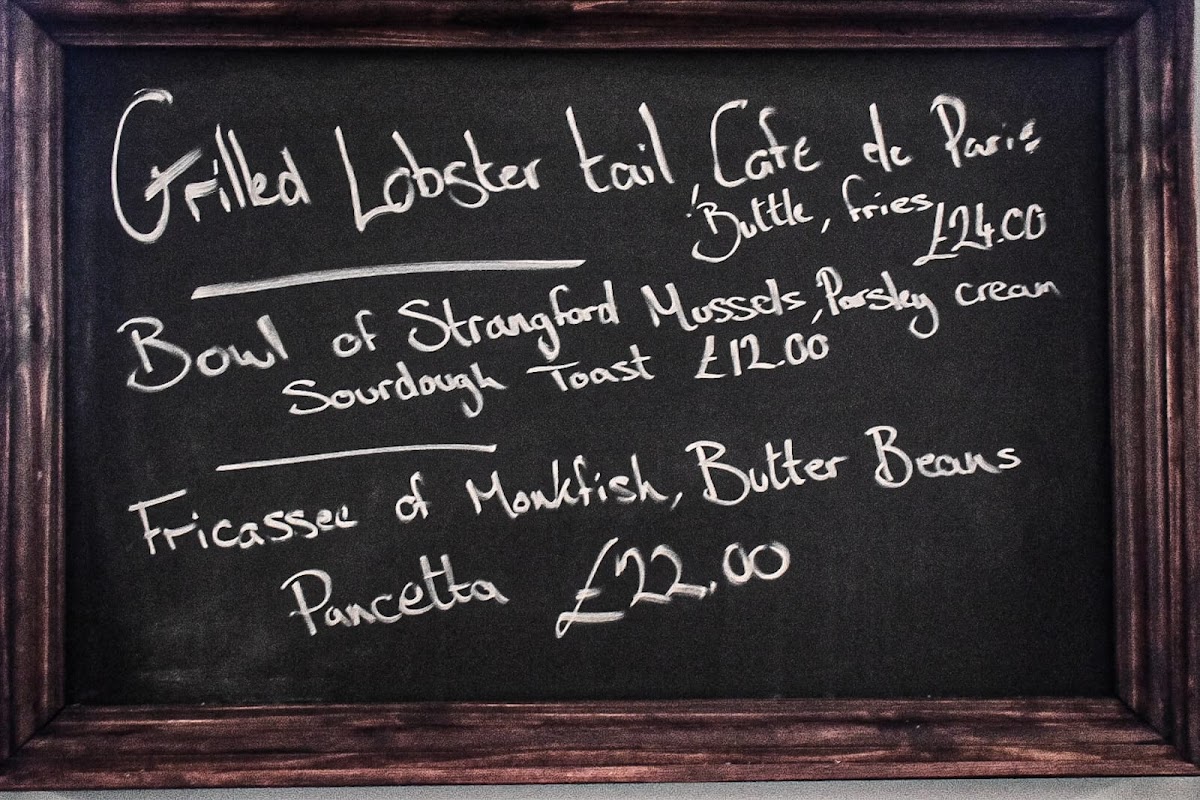 Grilled Lobster tail, Cafe de Paris
Buttle, fries £24.00
Bowl of Strangford Mussels, Parsley cream
Sourdough Toast £12.00
Fricassee of Monkfish, Butter Beans
Pancetta £22.00